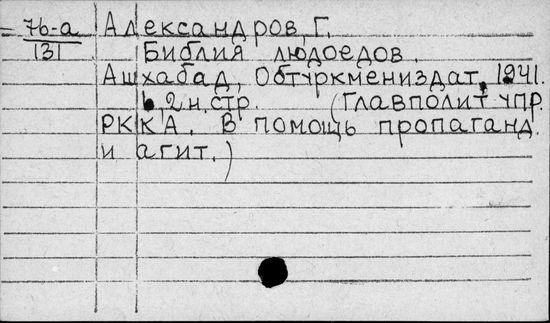 76-а Александров, Г.
131 Библия людоедов.
Ашхабад, Обтуркмениздат, 1941.
6, 2 н. стр. (Главполит упр.
РККА. В помощь пропаганд.
и агит.)